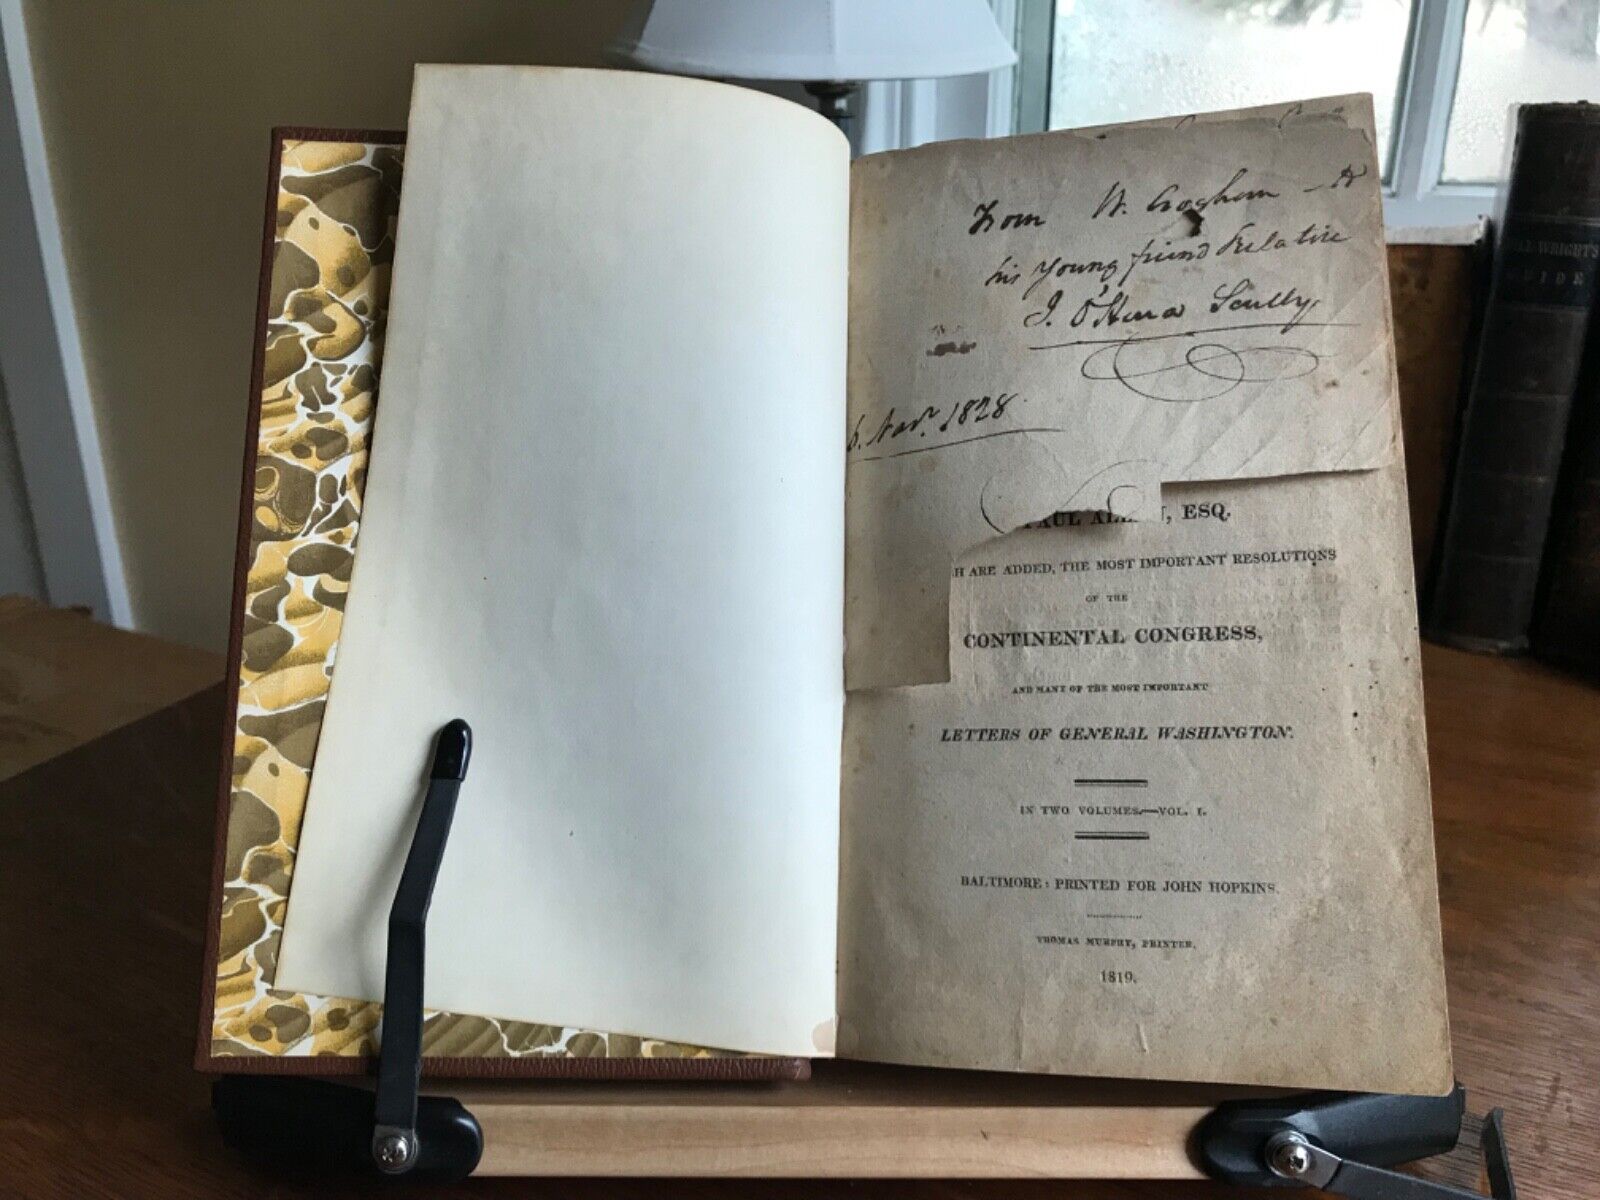 From W. Croghan - to
his Young friend & relative
J. O'Hara Scully
6. Nov.r 1828.
PAUL ALLEN, ESQ.
H ARE ADDED, THE MOST IMPORTANT RESOLUTIONS
OF THE
CONTINENTAL CONGRESS,
AND MANY OF THE MOST IMPORTANT
LETTERS OF GENERAL WASHINGTON.
IN TWO VOLUMES.—VOL. I.
BALTIMORE: PRINTED FOR JOHN HOPKINS.
THOMAS MURPHY, PRINTER.
1819.
WRIGHT'S
GUIDE